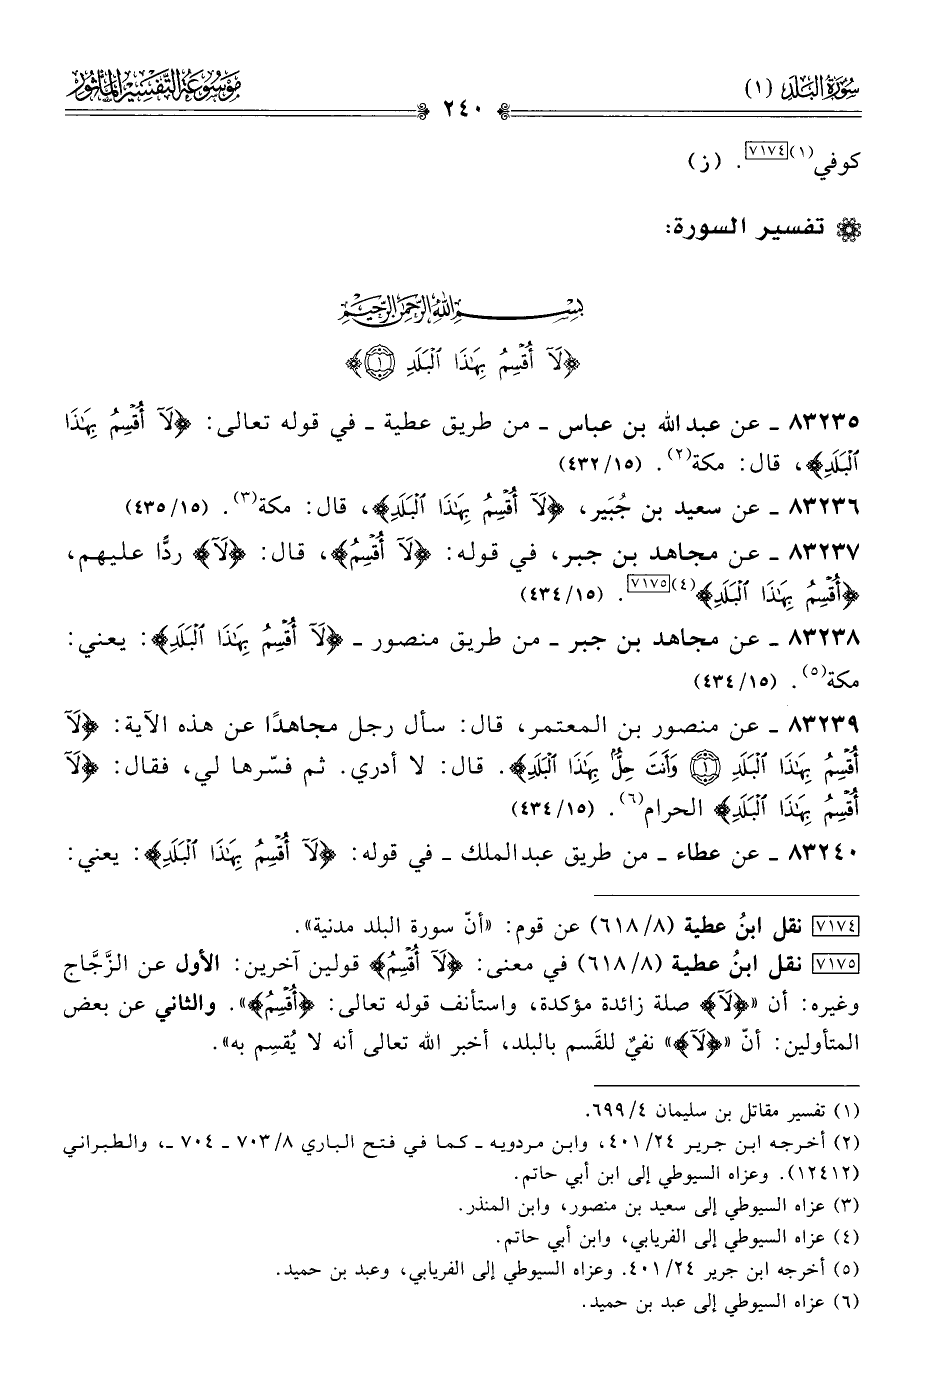 سُورَةُ البَلَدِ (١)
٢٤٠
مَوْسُوعَةُ التَّفْسِيرِ المَأْثُورِ
كوفي(١)[٧١٧٤]. (ز)
تفسير السورة:
بِسْمِ اللَّهِ الرَّحْمَنِ الرَّحِيمِ
﴿لَآ أُقْسِمُ بِهَٰذَا ٱلْبَلَدِ ۝١﴾
٨٣٢٣٥ ـ عن عبد الله بن عباس ـ من طريق عطية ـ في قوله تعالى: ﴿لَآ أُقْسِمُ بِهَٰذَا
ٱلْبَلَدِ﴾، قال: مكة(٢). (١٥/ ٤٣٢)
٨٣٢٣٦ ـ عن سعيد بن جُبَير، ﴿لَآ أُقْسِمُ بِهَٰذَا ٱلْبَلَدِ﴾، قال: مكة(٣). (١٥/ ٤٣٥)
٨٣٢٣٧ ـ عن مجاهد بن جبر، في قوله: ﴿لَآ أُقْسِمُ﴾، قال: ﴿لَآ﴾ ردًّا عليهم،
﴿أُقْسِمُ بِهَٰذَا ٱلْبَلَدِ﴾(٤)[٧١٧٥]. (١٥/ ٤٣٤)
٨٣٢٣٨ ـ عن مجاهد بن جبر ـ من طريق منصور ـ ﴿لَآ أُقْسِمُ بِهَٰذَا ٱلْبَلَدِ﴾: يعني:
مكة(٥). (١٥/ ٤٣٤)
٨٣٢٣٩ ـ عن منصور بن المعتمر، قال: سأل رجل مجاهدًا عن هذه الآية: ﴿لَآ
أُقْسِمُ بِهَٰذَا ٱلْبَلَدِ ۝١ وَأَنتَ حِلٌّۢ بِهَٰذَا ٱلْبَلَدِ﴾. قال: لا أدري. ثم فسّرها لي، فقال: ﴿لَآ
أُقْسِمُ بِهَٰذَا ٱلْبَلَدِ﴾ الحرام(٦). (١٥/ ٤٣٤)
٨٣٢٤٠ ـ عن عطاء ـ من طريق عبد الملك ـ في قوله: ﴿لَآ أُقْسِمُ بِهَٰذَا ٱلْبَلَدِ﴾: يعني:
[٧١٧٤] نقل ابنُ عطية (٨/ ٦١٨) عن قوم: «أنّ سورة البلد مدنية».
[٧١٧٥] نقل ابنُ عطية (٨/ ٦١٨) في معنى: ﴿لَآ أُقْسِمُ﴾ قولين آخرين: الأول عن الزَّجَّاج
وغيره: أن «﴿لَآ﴾ صلة زائدة مؤكدة، واستأنف قوله تعالى: ﴿أُقْسِمُ﴾». والثاني عن بعض
المتأولين: أنّ «﴿لَآ﴾» نفيٌ للقَسم بالبلد، أخبر الله تعالى أنه لا يُقسِم به».
(١) تفسير مقاتل بن سليمان ٤/ ٦٩٩.
(٢) أخرجه ابن جرير ٢٤/ ٤٠١، وابن مردويه ـ كما في فتح الباري ٨/ ٧٠٣ ـ ٧٠٤ ـ، والطبراني
(١٢٤١٢). وعزاه السيوطي إلى ابن أبي حاتم.
(٣) عزاه السيوطي إلى سعيد بن منصور، وابن المنذر.
(٤) عزاه السيوطي إلى الفريابي، وابن أبي حاتم.
(٥) أخرجه ابن جرير ٢٤/ ٤٠١. وعزاه السيوطي إلى الفريابي، وعبد بن حميد.
(٦) عزاه السيوطي إلى عبد بن حميد.